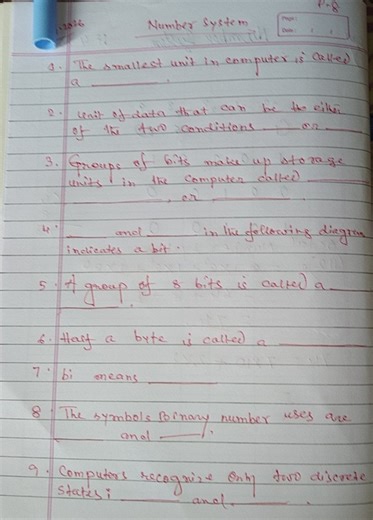 P-8
2026
Number System
Page:
Date: / /
1. The smallest unit in computer is called
a ______.
2. unit of data that can be the either
of the two conditions ______ or ______
3. Groups of bits make up storage
units in the computer called ______
______, or ______
4. ______ and ______ in the following diagram
indicates a bit.
5. A group of 8 bits is called a ___
______.
6. Half a byte is called a ______
7. bi means ______
8. The symbols Boinary number uses are
______ and ______.
9. Computers recognize only two discrete
states: ______ and ______.